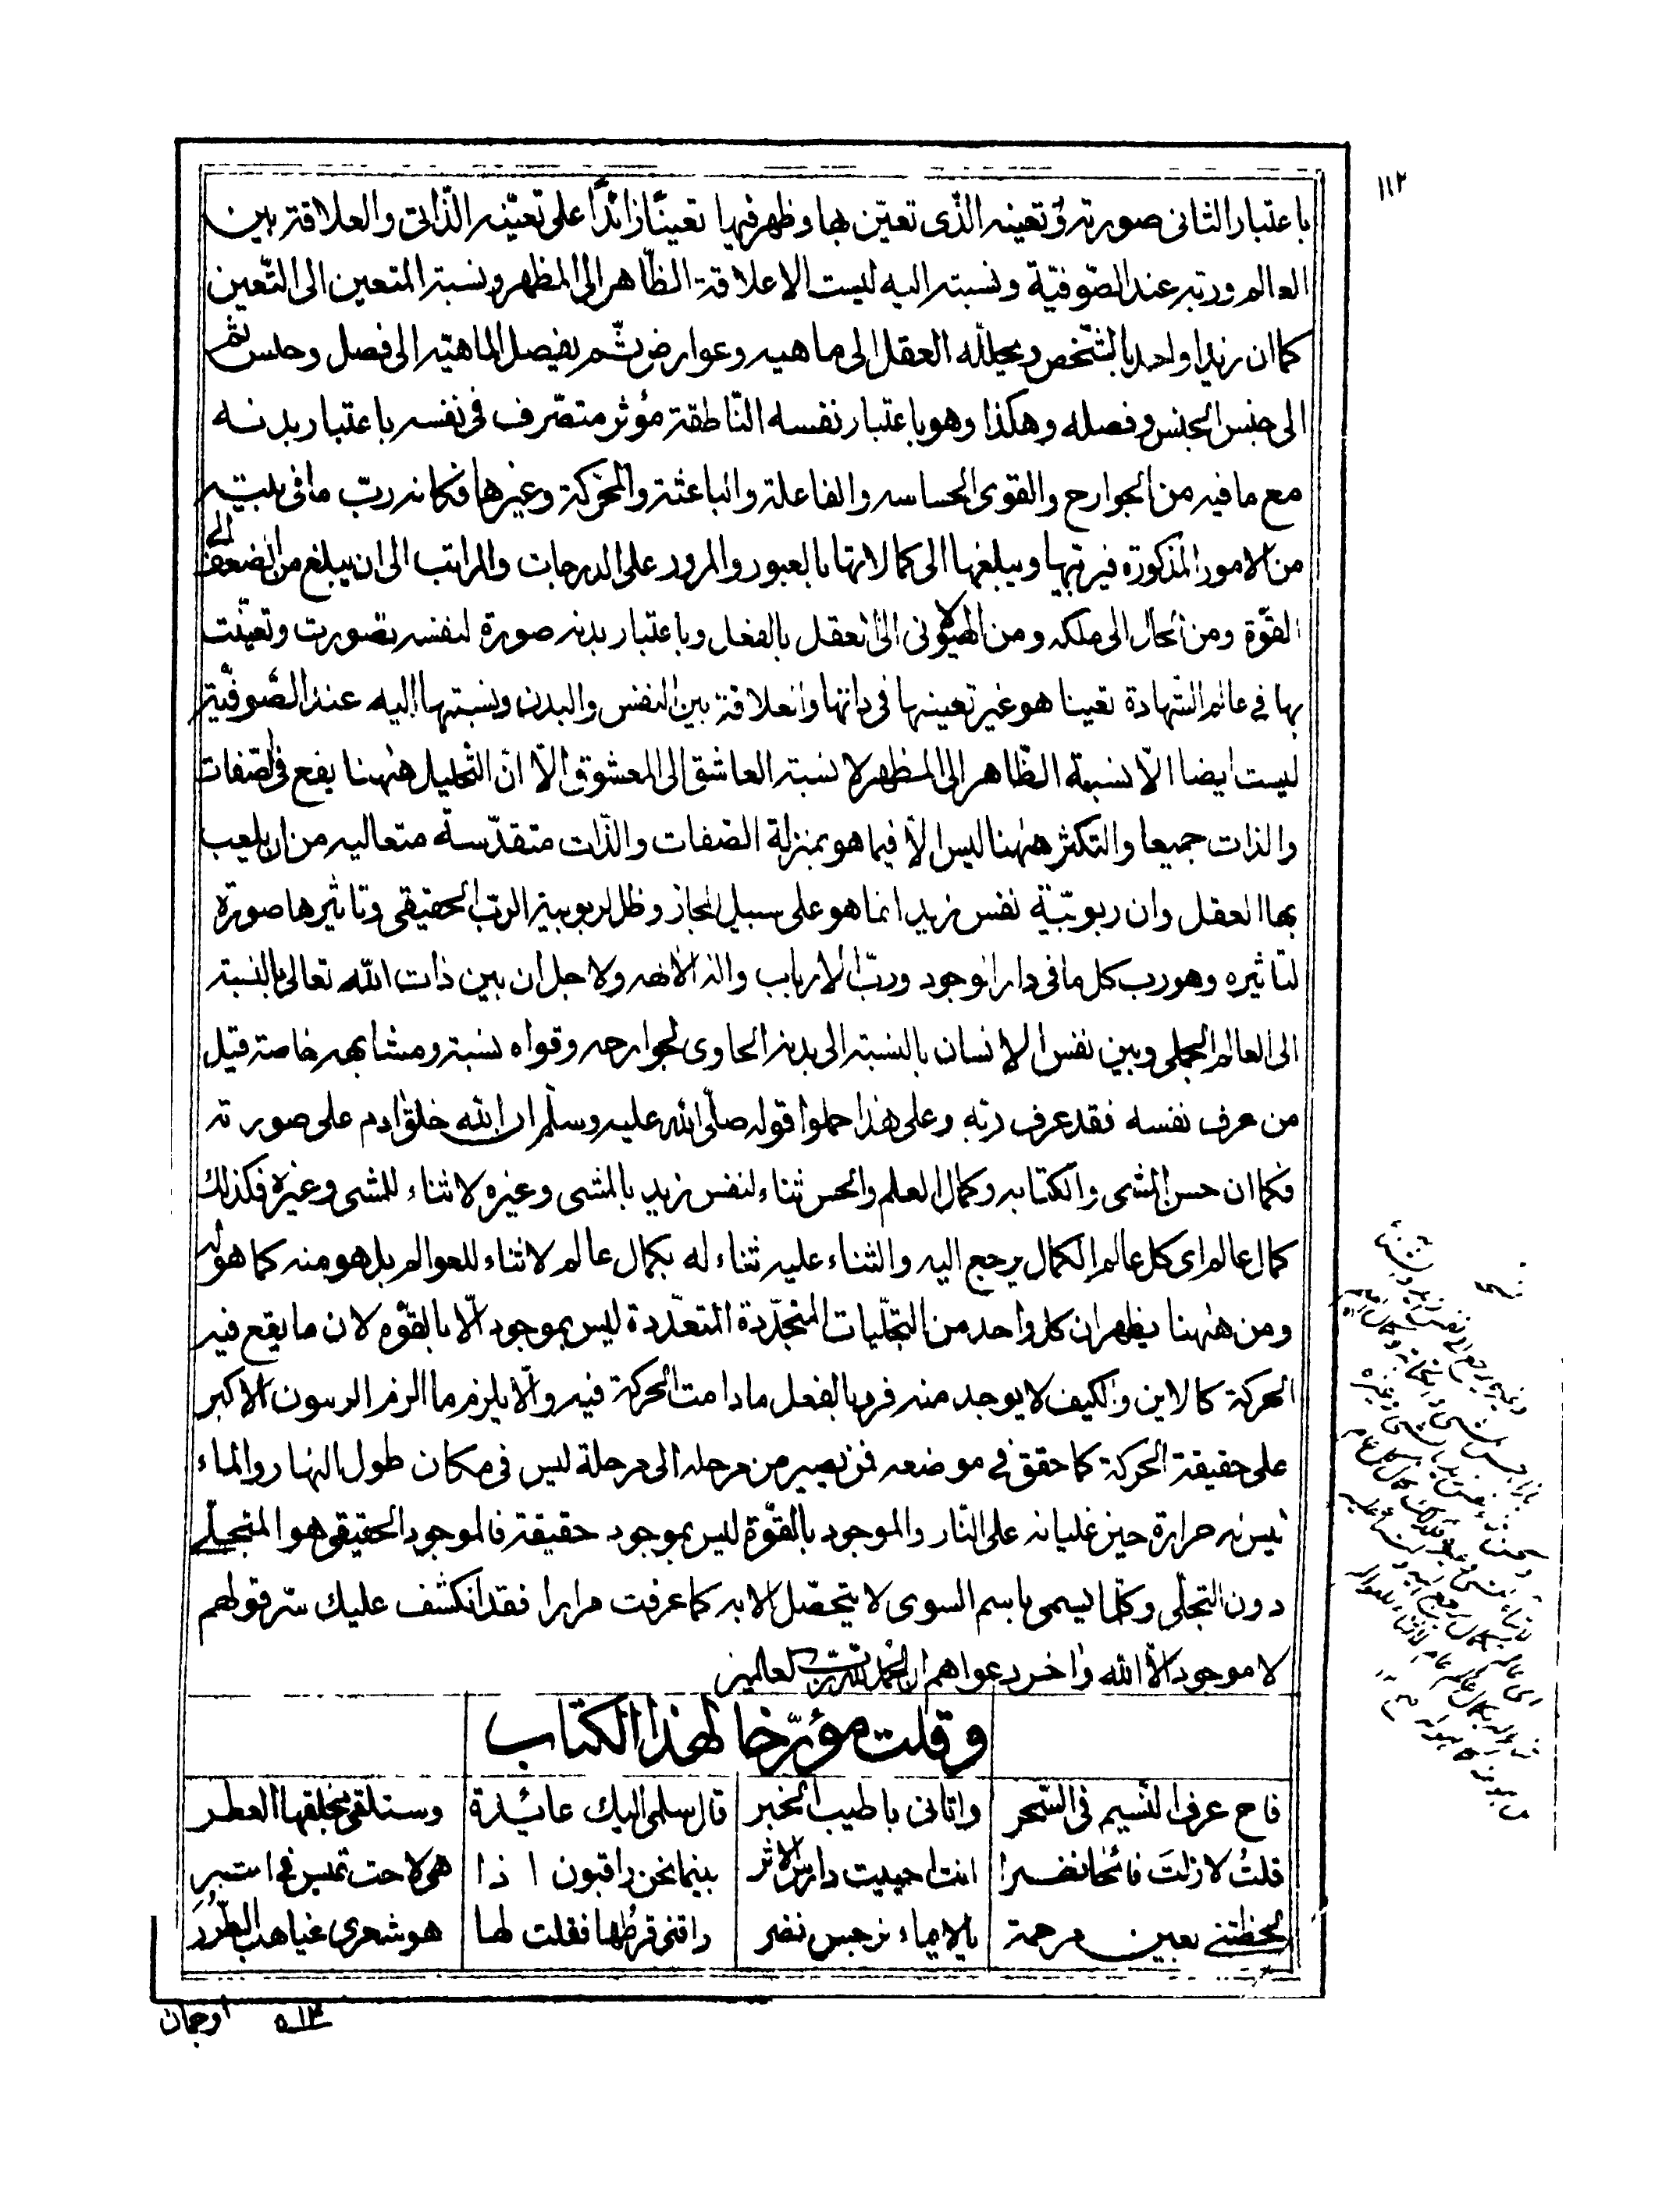 ١١٢
باعتبار الثانى صورته وتعينه الذى تعين بها وظهر فيها تعينًا زائدًا على تعيّنه الذّاتى والعلاقة بين
العالم وربه عند الصّوفيّة ونسبته اليه ليست الا علاقة الظّاهر الى المظهر ونسبة المتعين الى التّعين
كما ان زيدا واحد بالشّخص ويحلله العقل الى ماهيه وعوارض ثم يفصل الماهيّه الى فصل وجنس ثم
الى جنس الجنس وفصله وهكذا وهو باعتبار نفسه النّاطقة مؤثر متصّرف فى نفسه باعتبار بدنه
مع ما فيه من الجوارح والقوى الحساسه والفاعلة والباعثة والمحركة وغيرها فكانه ربّ ما فى بيته
من الامور المذكورة فيربيها ويبلغها الى كمالاتها بالعبور والمرور على الدرجات والمراتب الى ان يبلغ من الضعف الى
القوّة ومن الحال الى ملكه ومن الهيولانى الى العقل بالفعل وباعتبار بدنه صورة لنفسه تصورت وتعيّنت
بها في عالم الشّهادة تعينا هو غير تعينها فى ذاتها والعلاقة بين النفس والبدن ونسبتها اليه عند الصّوفيّة
ليست ايضا الّا نسبة الظّاهر الى المظهر لا نسبة العاشق الى المعشوق الّا انّ التّحليل هٰهنا يقع فى الصّفات
والذات جميعا والتكثر هٰهنا ليس الّا فيما هو بمنزلة الصفات والذّات متقدّسة متعاليه من ان يلعب
بها العقل وان ربوبيّة نفس زيد انما هو على سبيل المجاز وظل لربوبية الربّ الحقيقى وتاثيرها صورة
لتاثيره وهو رب كل ما فى دار الوجود وربّ الارباب واله الالهه ولاجل ان بين ذات الله تعالى بالنسبة
الى العالم الجملى وبين نفس الانسان بالنسبة الى بدنه الحاوى لجوارحه وقواه نسبة ومشابهه خاصة قيل
من عرف نفسه فقد عرف ربّه وعلى هٰذا حملوا قوله صلّى الله عليه وسلّم ان الله خلق ادم على صورته
فكما ان حسن المشى والكتابه وكمال العلم والحس ثناء لنفس زيد بالمشى وغيره لا ثناء للمشى وغيره فكذلك
كمال عالم اى كل عالم الكمال يرجع اليه والثناء عليه ثناء له بكمال عالم لا ثناء للعوالم بل هو منه كما هو له
ومن هٰهنا يظهر ان كل واحد من التجلّيات المتجدّدة المتعدّدة ليس بموجود الّا بالقوّه لان ما يقع فيه
الحركة كالاين والكيف لا يوجد منه فرد بالفعل ما دامت الحركة فيه والّا يلزم ما الزم الرسون الاكبر
على حقيقة الحركة كما حقق في موضعه فمن يسير من مرحله الى مرحلة ليس فى مكان طول النهار والماء
ليس له حرارة حين غليانه على النّار والموجود بالقوّة ليس بموجود حقيقة فالموجود الحقيقى هو المتجلّى
دون التجلّى وكلما يسمى باسم السوى لا يتحصّل الا به كما عرفت مرارا فقد انكشف عليك سّر قولهم
لا موجود الّا الله واخر دعواهم ان الحمد لله ربّ العالمين
وقلت مؤرّخا لهذا الكتاب
فاح عرف النّسيم فى السّحر واتانى باطيب الخبر قال سلمى اليك عائدة وستلقى بخلقها العطر
قلتُ لا زلتَ فائحا نضرا انت احييت دارس الاثر بينما نحن راقبون اذا هى لاحت تميس فى استبر
لحظتنى بعين مرحمة بالايماء نرجس نضر راقنى قرطها فقلت لها هو شعرى غياهب الطّرَر